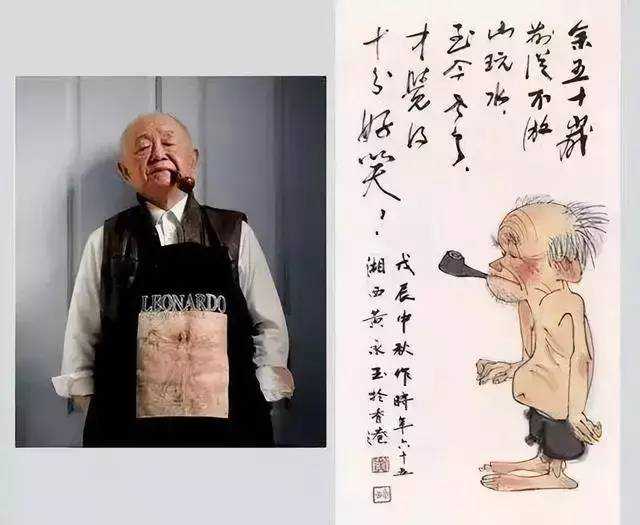 LEONARDO
余五十歲
前從不游
山玩水，
至今老了，
才覺得
十分好笑！
戊辰中秋作時年六十五
湘西黄永玉於香港